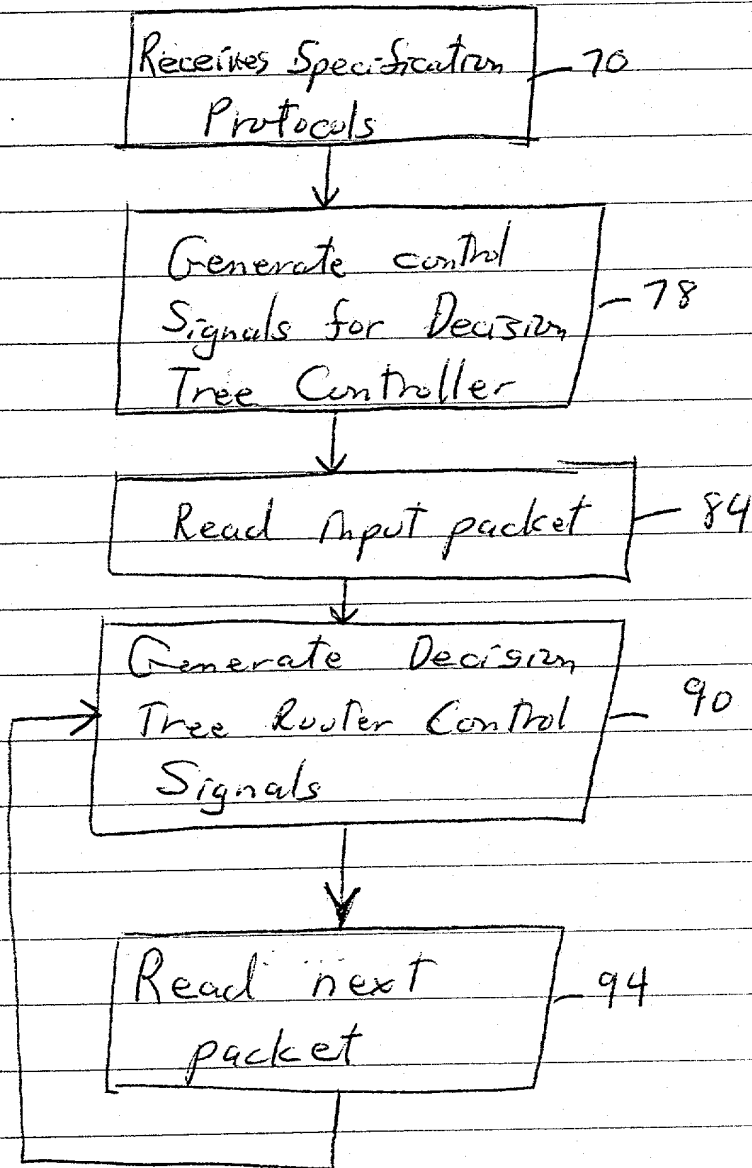 Receives Specification
Protocols
70
Generate control
Signals for Decision
Tree Controller
78
Read input packet
84
Generate Decision
Tree Router Control
Signals
90
Read next
packet
94